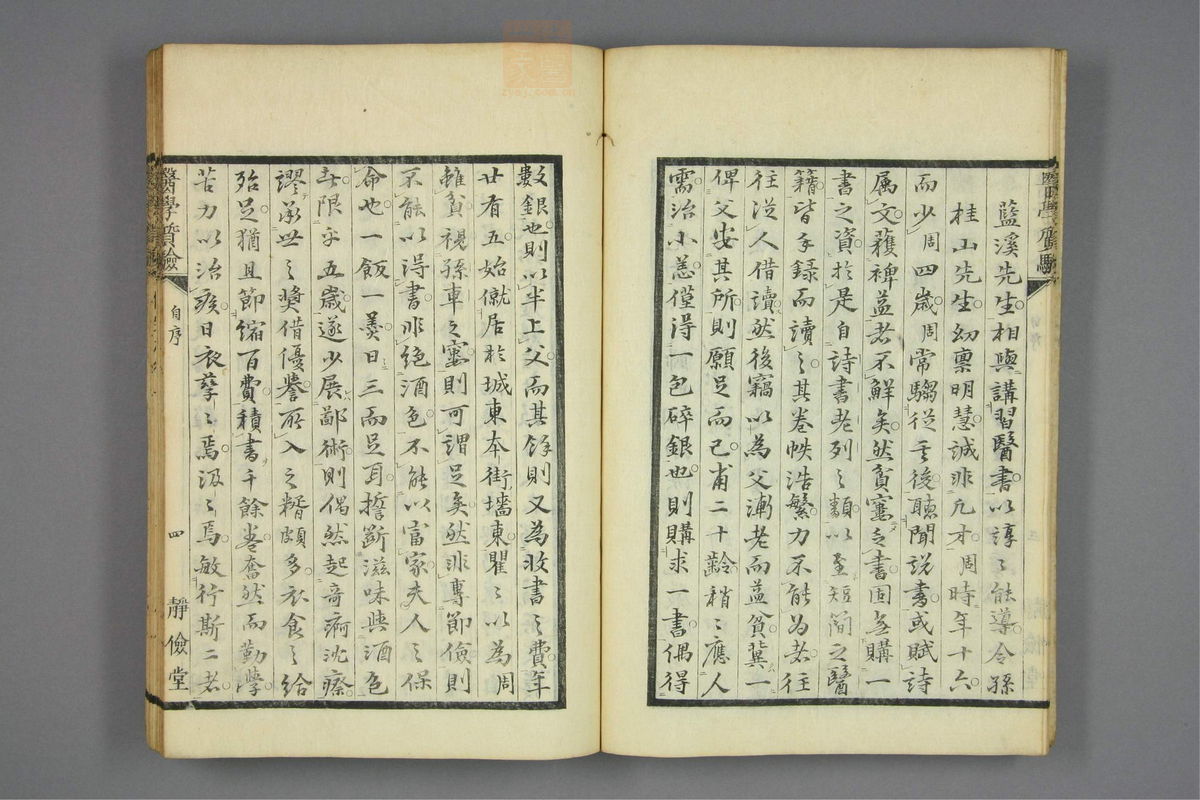 藍溪先生相與講習醫書以諄〻能導令孫
桂山先生幼稟明慧誠非凡才周時年十六
而少周四歳周常騶從其後聽聞説書或賦詩
属文蒦裨益者不鮮矣然貧窶乏書固無購一
書之資於是自詩書老列之類以至短簡之醫
籍皆手錄而讀之其卷帙浩繁力不能為者往
往從人借讀然後竊以為父漸老而益貧冀一
俾父安其所則願足而已甫二十齡稍〻應人
需治小恙僅得一包碎銀也則購求一書偶得
數銀也則以半上父而其餘則又為收書之費年
廿有五始僦居於城東本街墻東瞿〻以為周
雖貧視孫車之窶則可謂足矣然非專節儉則
不能以得書非絕酒色不能以富家夫人之保
命也一飯一羮日三而足耳擔斷滋味與酒色
無限乎五歳遂少展鄙術則偶然起奇痾沈瘵
謬承世之奬借優譽所入之糈頗多衣食之給
殆足猶且節縮百費積書千餘卷奮然而勤學
苦力以治疾日夜孳〻焉汲〻焉敏行斯二者
醫學質驗
自序
四
靜儉堂